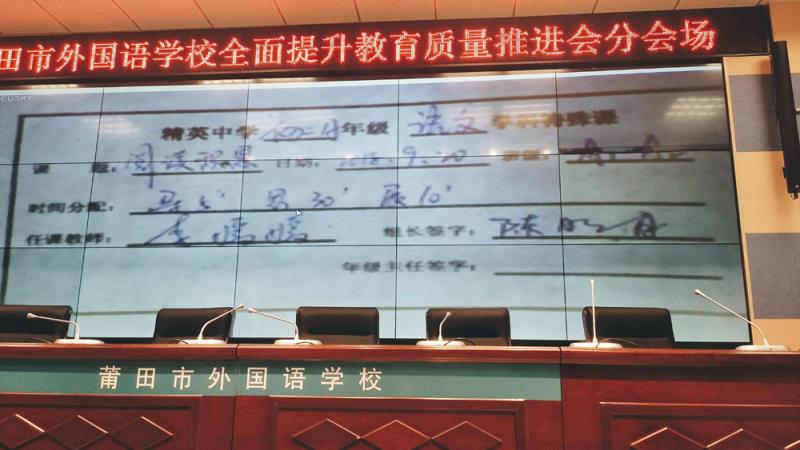 田市外国语学校全面提升教育质量推进会分会场
CUSKY
精英中学 年级 语文 学科特殊课
课 题： 日期：2018.9.20
时间分配： 30' 展10'
任课教师：李媛媛 组长签字：陈
年级主任签字：
莆田市外国语学校